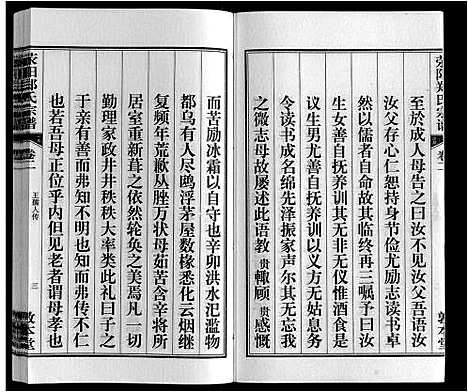 荥阳郑氏宗谱
卷二
至於成人母告之曰汝不见汝父吾语汝
汝父存心仁恕持身节俭尤励志读书卓
然以儒者自命故其临终再三嘱予曰汝
生女善自抚养训其无非无仪惟酒食是
议生男尤善自抚养训以义方无姑息务
令读书成名绵先泽振家声尔其无忘我
之微志母故屡述此语教贵辄顾贵感慨
而苦励冰霜以自守至辛卯洪水氾滥物
都乌有人尽鸥浮茅屋数椽悉化云烟继
复频年荒歉丛脞万状母茹苦含辛将所
居室重新葺之依然轮奂之美焉凡一切
勤理家政井井秩秩大率类此礼曰子之
于亲有善而弗知不明也知而弗传不仁
也若吾母正位乎内但见老者谓母孝也
荥阳郑氏宗谱
卷二
王孺人传
三
敦本堂